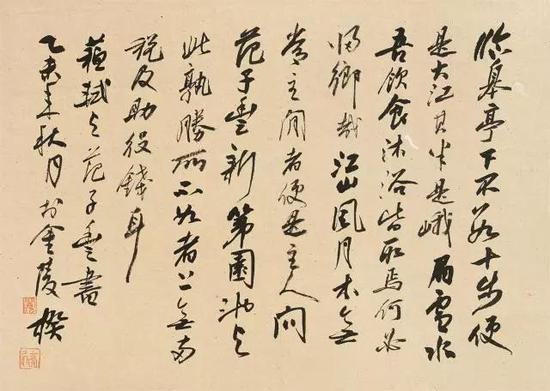 临皋亭下不数十步便
是大江其半是峨眉雪水
吾飲食沐浴皆取焉何必
歸鄉哉江山風月本無
常主閒者便是主人問
范子豐新第園池与
此孰勝所不如者上無両
税及助役錢耳
蘇軾与范子豐書
乙未年秋月於金陵